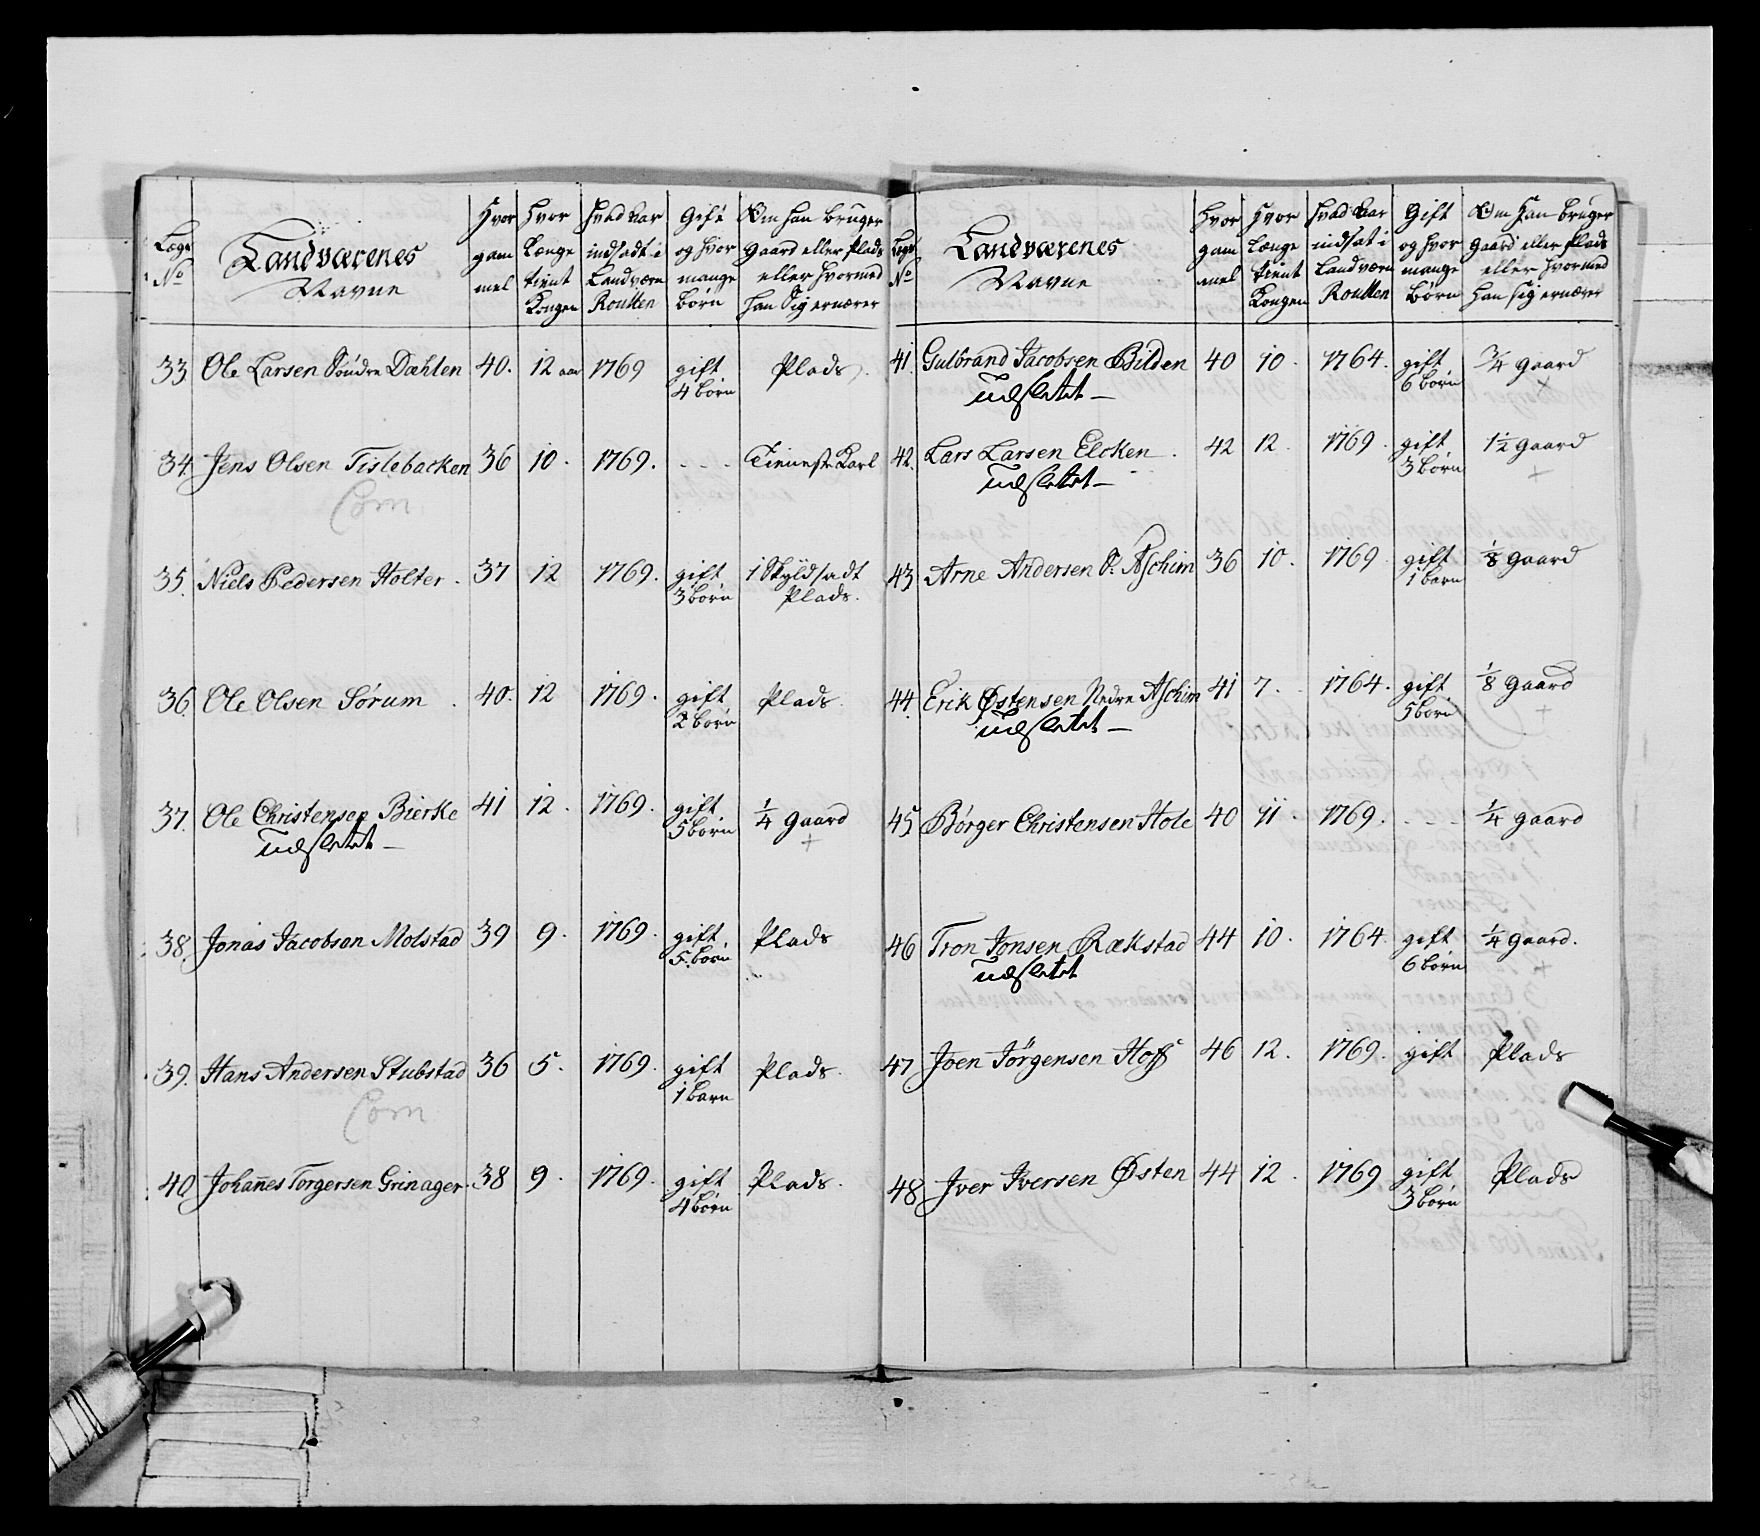 Lægs No | Landværenes Navne | Hvor gammel | Hvor Længe tient Kongen | Hvad Aar indsadt i Landværn Roullen | Gift og hvor mange børn | Om han bruger Gaard eller Plads eller hvormed han Sig ernærer
33 Ole Larsen Søndre Dæhlen 40. 12 aar 1769 gift 4 børn Plads.
34. Jens Olsen Tislebacken 36 10. 1769. - - - Tieneste Karl
Com
35. Niels Pedersen Holter. 37 12 1769. gift 3 børn 1 Skyldsadt Plads.
36. Ole Olsen Sørum. 40. 12 1769. gift 2 børn Plads.
37. Ole Christensen Bierke 41 12. 1769. gift 5 børn 1/4 Gaard +
udsletet —
38. Jonas Jacobsen Molstad 39 9. 1769. gift 5 børn Plads
39. Hans Andersen Stubstad 36 5. 1769. gift 1 barn Plads.
Com
40 Johannes Torgersen Grinager. 38 9. 1769. gift 4 børn Plads.
Lægs No | Landværenes Navne | Hvor gammel | Hvor Længe tient Kongen | Hvad Aar indsat i Landværn Roullen | Gift og hvor mange Børn | Om han bruger Gaard eller Plads eller hvormed han sig ernærer
41. Gulbrand Jacobsen Bilden 40 10. 1764. gift 6 børn 3/4 Gaard +
udsletet —
42. Lars Larsen Elcken. 42 12. 1769. gift 3 børn 1 1/2 Gaard +
udsletet —
43 Arne Andersen Ø. Aschim 36 10. 1769. gift 1 barn 1/8 Gaard
44. Erik Østensen Nedre Aschim 41 7. 1764. gift 5 børn 1/8 Gaard +
udsletet —
45 Børger Christensen Hole 40 11. 1769. - - - 1/4 Gaard
46 Tron Jonsen Rækstad 44 10. 1764. gift 6 børn 1/4 Gaard.
udsletet
47 Joen Jörgensen Hoff 46 12. 1769. gift Plads
48 Jver Jversen Østen 44 12. 1769 gift 3 børn Plads